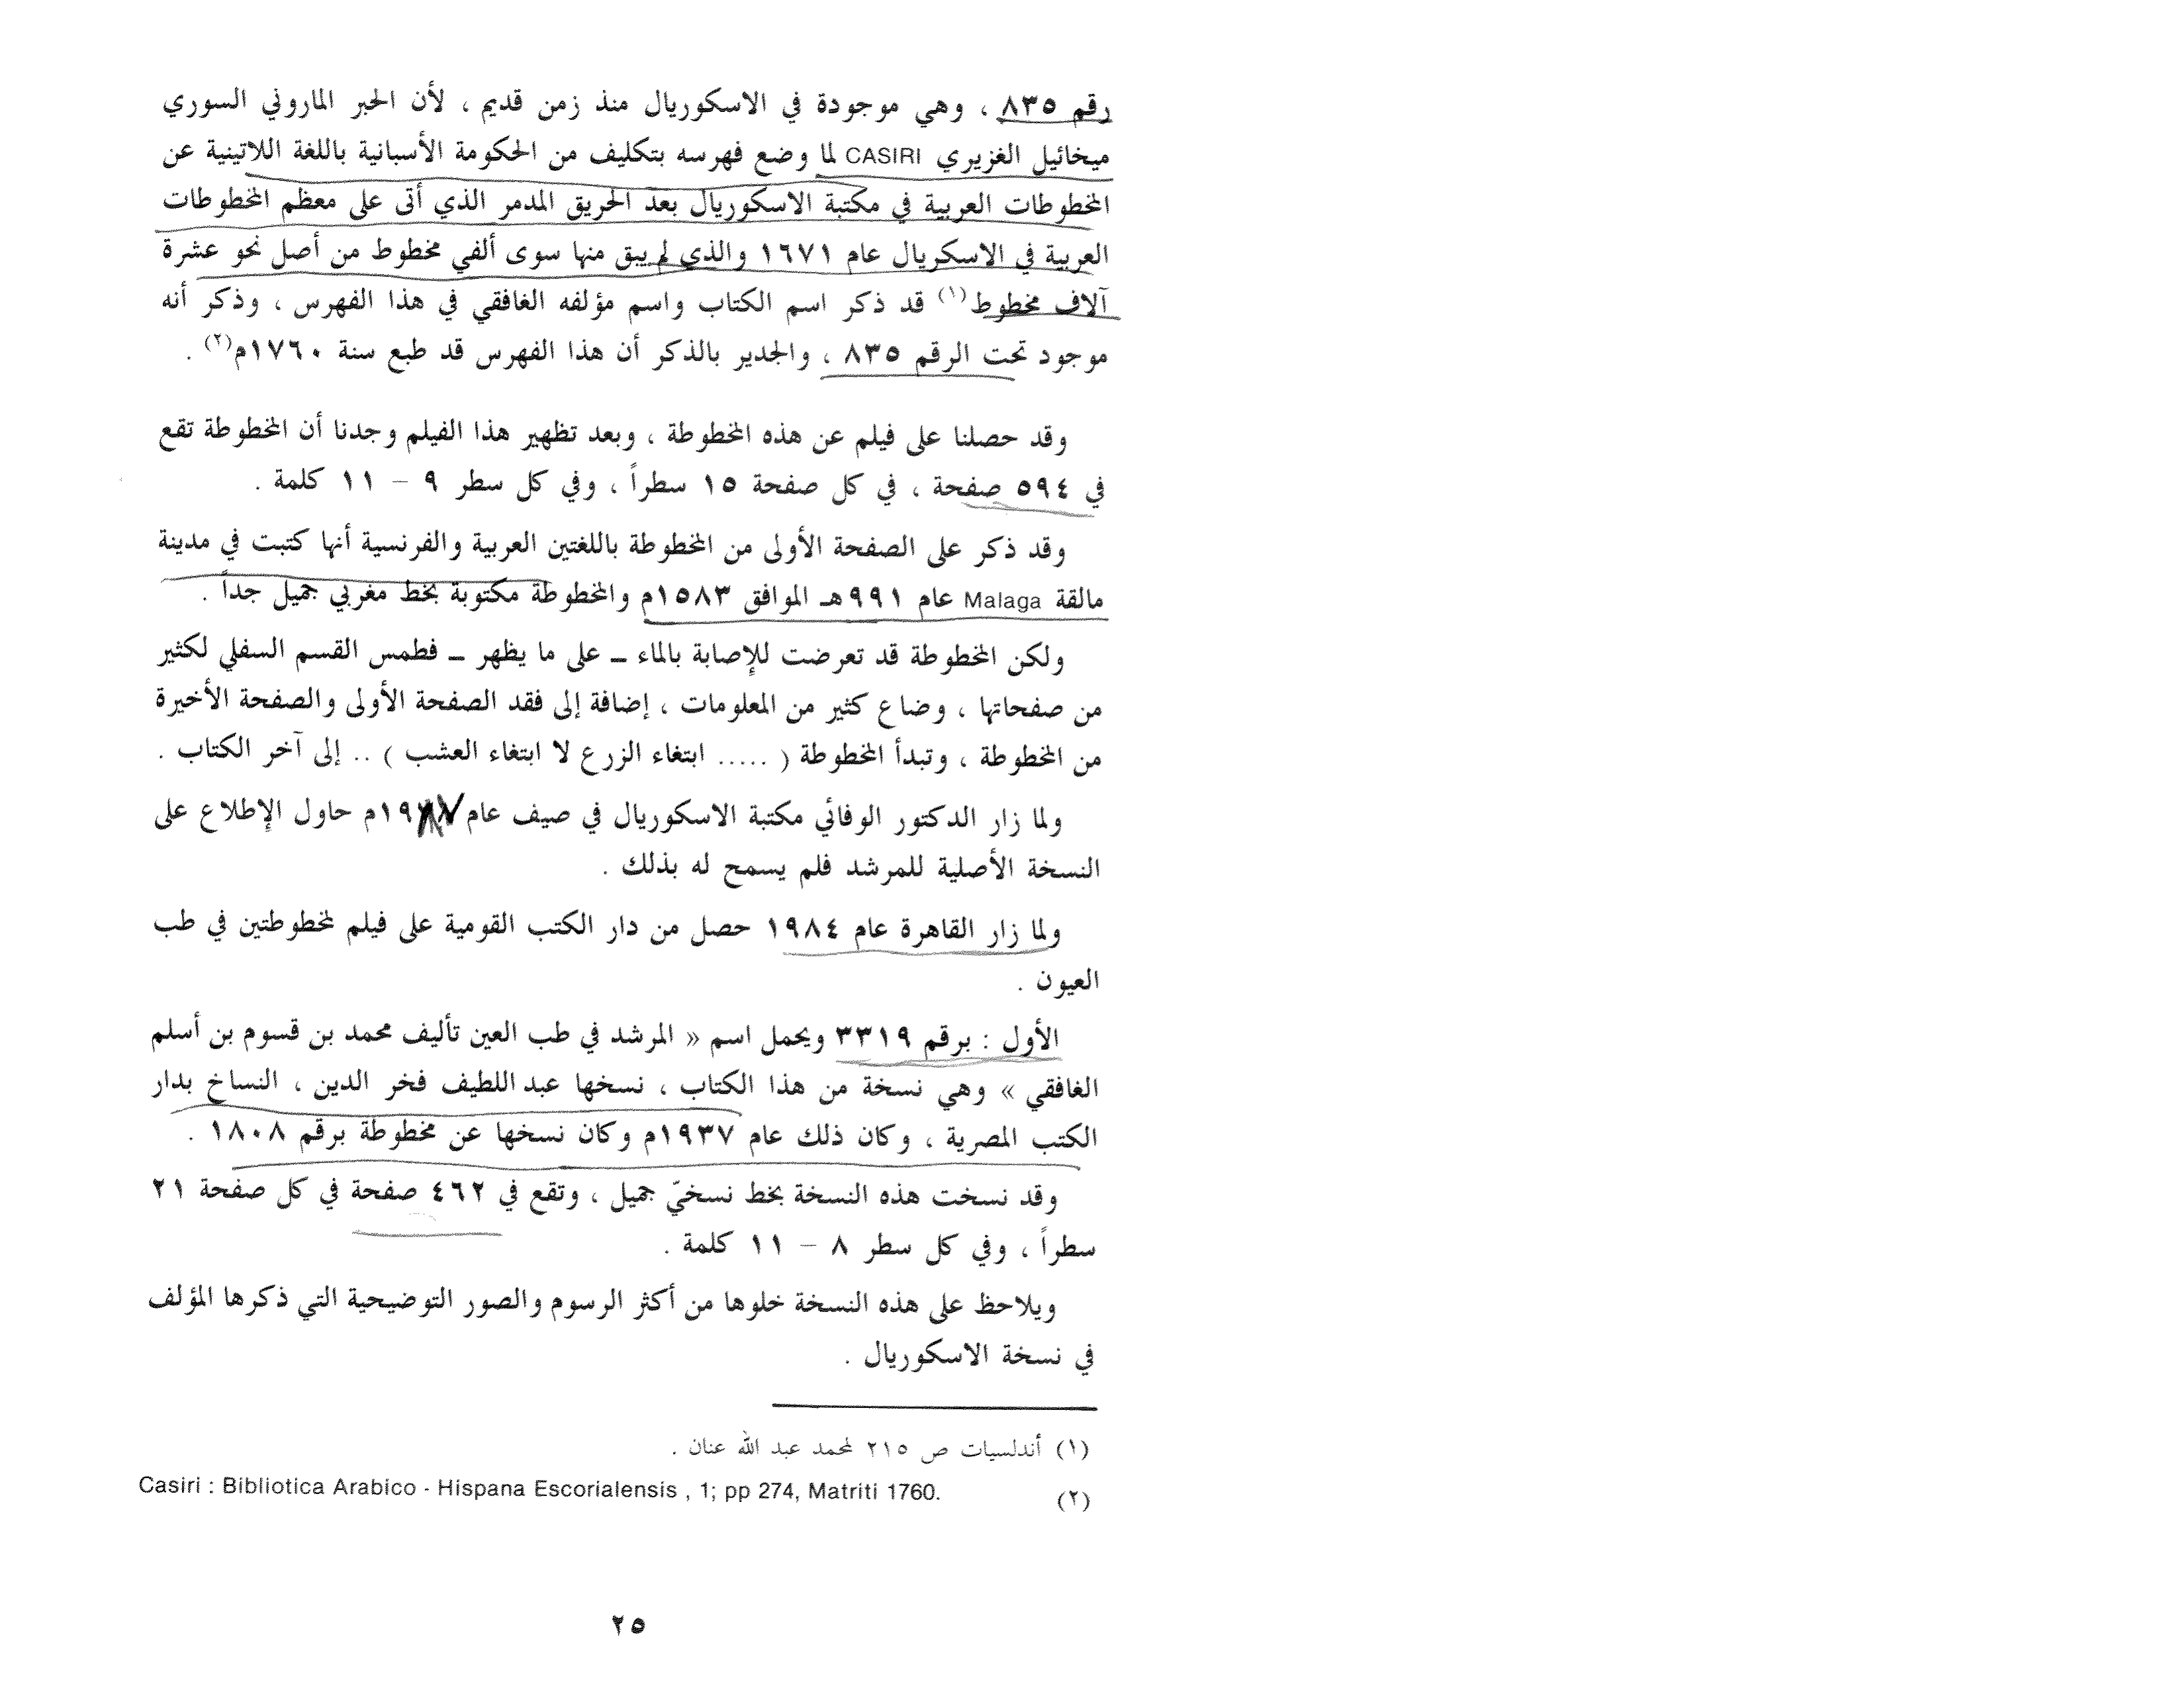 رقم ٨٣٥ ، وهي موجودة في الاسكوريال منذ زمن قديم ، لأن الحبر الماروني السوري
ميخائيل الغزيري CASIRI لما وضع فهرسه بتكليف من الحكومة الأسبانية باللغة اللاتينية عن
المخطوطات العربية في مكتبة الاسكوريال بعد الحريق المدمر الذي أتى على معظم المخطوطات
العربية في الاسكريال عام ١٦٧١ والذي لم يبق منها سوى ألفي مخطوط من أصل نحو عشرة
آلاف مخطوط(١) قد ذكر اسم الكتاب واسم مؤلفه الغافقي في هذا الفهرس ، وذكر أنه
موجود تحت الرقم ٨٣٥ ، والجدير بالذكر أن هذا الفهرس قد طبع سنة ١٧٦٠م(٢) .
وقد حصلنا على فيلم عن هذه المخطوطة ، وبعد تظهير هذا الفيلم وجدنا أن المخطوطة تقع
في ٥٩٤ صفحة ، في كل صفحة ١٥ سطراً ، وفي كل سطر ٩ – ١١ كلمة .
وقد ذكر على الصفحة الأولى من المخطوطة باللغتين العربية والفرنسية أنها كتبت في مدينة
مالقة Malaga عام ٩٩١هـ الموافق ١٥٨٣م والمخطوطة مكتوبة بخط مغربي جميل جداً .
ولكن المخطوطة قد تعرضت للإصابة بالماء ــ على ما يظهر ــ فطمس القسم السفلي لكثير
من صفحاتها ، وضاع كثير من المعلومات ، إضافة إلى فقد الصفحة الأولى والصفحة الأخيرة
من المخطوطة ، وتبدأ المخطوطة ( ..... ابتغاء الزرع لا ابتغاء العشب ) .. إلى آخر الكتاب .
ولما زار الدكتور الوفائي مكتبة الاسكوريال في صيف عام حاول الإطلاع على
النسخة الأصلية للمرشد فلم يسمح له بذلك .
ولما زار القاهرة عام ١٩٨٤ حصل من دار الكتب القومية على فيلم لمخطوطتين في طب
العيون .
الأول : برقم ٣٣١٩ ويحمل اسم « المرشد في طب العين تأليف محمد بن قسوم بن أسلم
الغافقي » وهي نسخة من هذا الكتاب ، نسخها عبد اللطيف فخر الدين ، النساخ بدار
الكتب المصرية ، وكان ذلك عام ١٩٣٧م وكان نسخها عن مخطوطة برقم ١٨٠٨ .
وقد نسخت هذه النسخة بخط نسخيّ جميل ، وتقع في ٤٦٢ صفحة في كل صفحة ٢١
سطراً ، وفي كل سطر ٨ – ١١ كلمة .
ويلاحظ على هذه النسخة خلوها من أكثر الرسوم والصور التوضيحية التي ذكرها المؤلف
في نسخة الاسكوريال .
(١) أندلسيات ص ٢١٥ لمحمد عبد الله عنان .
(٢) Casiri : Bibliotica Arabico - Hispana Escorialensis , 1; pp 274, Matriti 1760.
٢٥